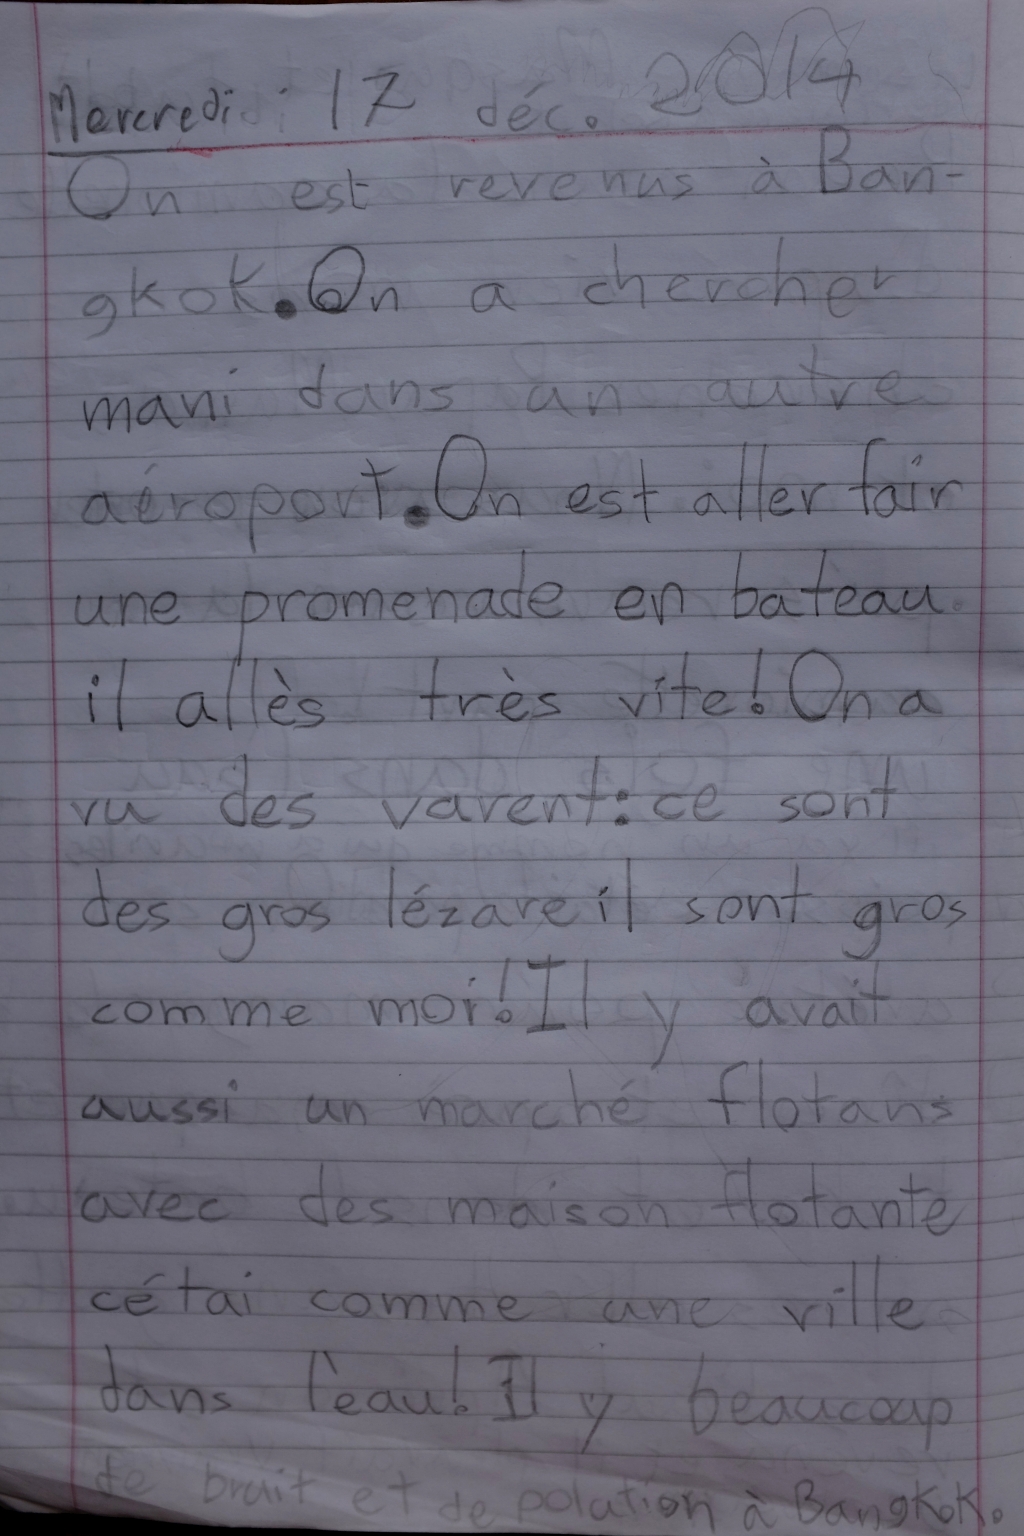 Mercredi 17 déc. 2014
On est revenus à Ban-
gkok. On a chercher
mani dans un autre
aéroport. On est aller fair
une promenade en bateau
il allès très vite! On a
vu des varent: ce sont
des gros lézare il sont gros
comme moi! Il y avait
aussi un marché flotans
avec des maison flotante
cétai comme une ville
dans l'eau! Il y beaucoup
de bruit et de polution à Bangkok.